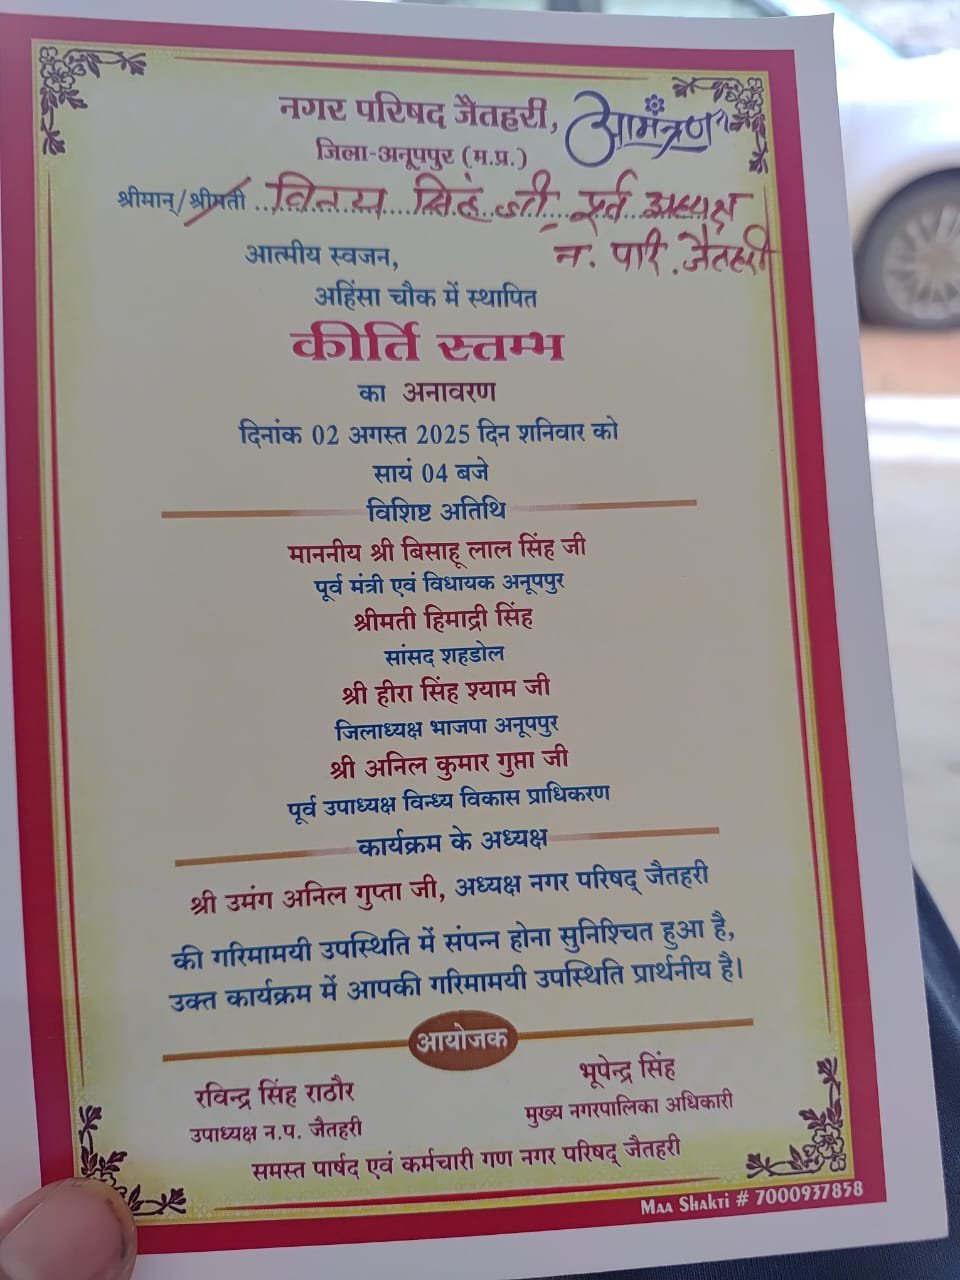 नगर परिषद जैतहरी,
आमंत्रण
जिला-अनूपपुर (म.प्र.)
श्रीमान्/श्रीमती विनय सिंह जी पूर्व अध्यक्ष
न. परि. जैतहरी
आत्मीय स्वजन,
अहिंसा चौक में स्थापित
कीर्ति स्तम्भ
का अनावरण
दिनांक 02 अगस्त 2025 दिन शनिवार को
सायं 04 बजे
विशिष्ट अतिथि
माननीय श्री बिसाहू लाल सिंह जी
पूर्व मंत्री एवं विधायक अनूपपुर
श्रीमती हिमाद्री सिंह
सांसद शहडोल
श्री हीरा सिंह श्याम जी
जिलाध्यक्ष भाजपा अनूपपुर
श्री अनिल कुमार गुप्ता जी
पूर्व उपाध्यक्ष विन्ध्य विकास प्राधिकरण
कार्यक्रम के अध्यक्ष
श्री उमंग अनिल गुप्ता जी, अध्यक्ष नगर परिषद् जैतहरी
की गरिमामयी उपस्थिति में संपन्न होना सुनिश्चित हुआ है,
उक्त कार्यक्रम में आपकी गरिमामयी उपस्थिति प्रार्थनीय है।
आयोजक
रविन्द्र सिंह राठौर
उपाध्यक्ष न.प. जैतहरी
भूपेन्द्र सिंह
मुख्य नगरपालिका अधिकारी
समस्त पार्षद एवं कर्मचारी गण नगर परिषद् जैतहरी
MAA SHAKTI # 7000937858